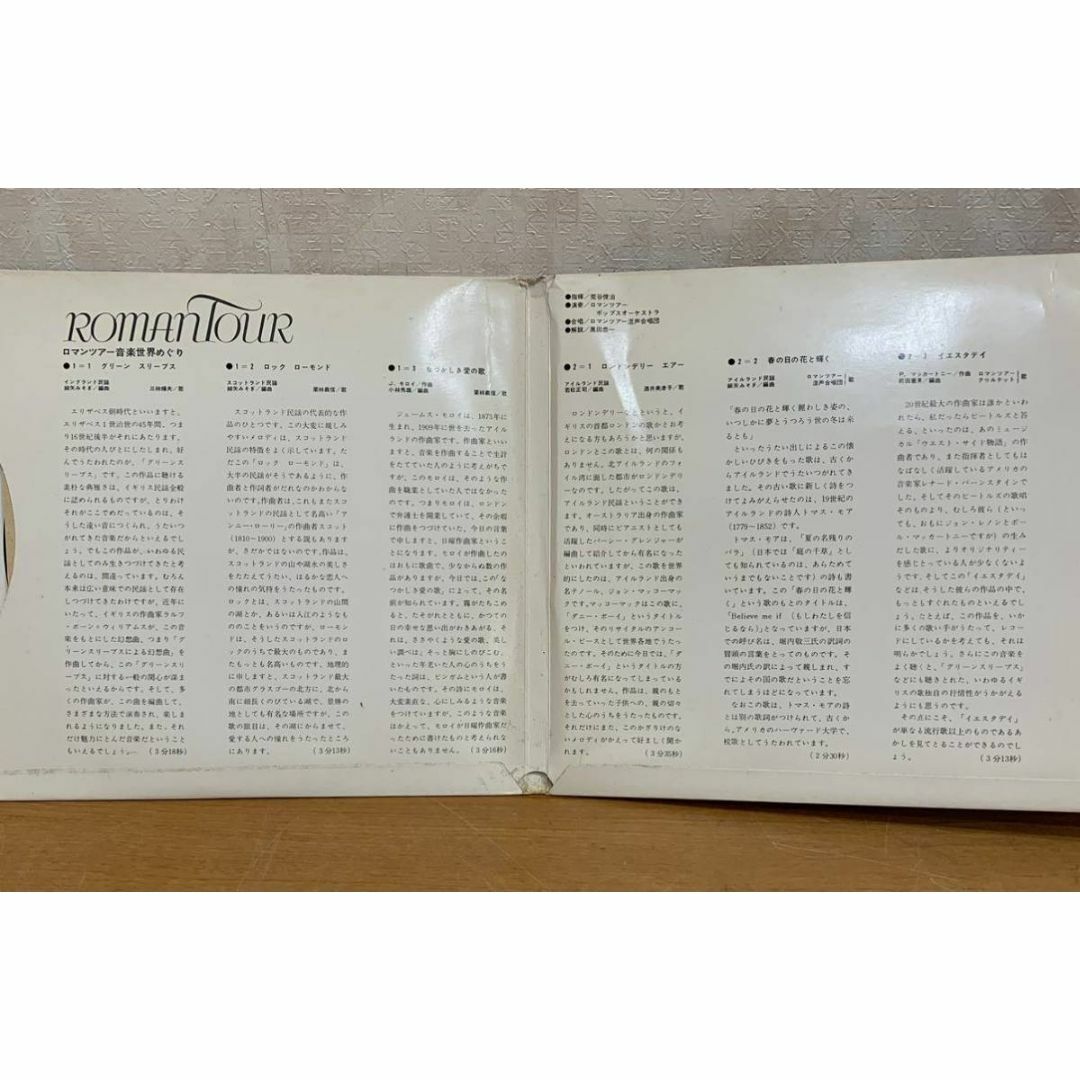 ROMANTOUR
ロマンツアー音楽世界めぐり
●1＝1 グリーン スリーブス
イングランド民謡
エリザベス朝時代といいますと、
エリザベス1世治世の45年間、つま
り16世紀後半がそれにあたります。
その時代の人びとにしたしまれ、好
んでうたわれたのが、「グリーンス
リーブス」です。この作品に聴ける
素朴な典雅さは、イギリス民謡全般
に認められるものですが、とりわけ
それがここでめだっているのは、そ
うした遠い昔につくられ、うたいつ
がれてきた音楽だからといえるでし
ょう。でもこの作品が、いわゆる民
謡としてのみ生きつづけてきたと考
えるのは、間違っています。むろん
本来は広い意味での民謡として存在
しつづけてきたわけですが、近年に
いたって、イギリスの作曲家ラルフ
・ボーン＝ウィリアムスが、この音
楽をもとにした幻想曲、つまり「グ
リーンスリーブスによる幻想曲」を
作曲してから、この「グリーンスリ
ーブス」に対する一般の関心が深ま
ったといえるからです。そして、多
くの作曲家が、この曲を編曲して、
さまざまな方法で演奏され、楽しま
れるようになりました。また、それ
だけ魅力にとんだ音楽だということ
もいえるでしょう。 (3分18秒)
●1＝2 ロック ローモンド
スコットランド民謡
スコットランド民謡の代表的な作
品のひとつです。この大変に親しみ
やすいメロディは、スコットランド
民謡の特徴をよく示しています。た
だこの「ロック ローモンド」は、
大半の民謡がそうであるように、作
曲者と作詞者がだれなのかわからな
いのです。作曲者は、これもまたスコ
ットランドの民謡として名高い「ア
ンニー・ローリー」の作曲者スコット
(1810〜1900) とする説もあります
が、さだかではないのです。作品は、
スコットランドの山や湖水の美しさ
をたたえてうたい、はるかな恋人へ
の憧れの気持をうたったものです。
ロックとは、スコットランドの山間
の湖とか、あるいは入江のようなも
ののことをいうのですが、ローモン
ドは、そうしたスコットランドのロ
ックのうちで最大のものであり、ま
たもっとも名高いものです。地理的
に申しますと、スコットランド最大
の都市グラスゴーの北方に、北から
南に細長くのびている湖で、景勝の
地としても有名な場所ですが、この
歌の眼目は、その湖にからませて、
愛する人への憧れをうたったところ
にあります。 (3分13秒)
●1＝3 なつかしき愛の歌
J. モロイ／作曲
ジェームス・モロイは、1871年に
生まれ、1909年に世を去ったアイル
ランドの作曲家です。作曲家といい
ますと、音楽を作曲することで生計
をたてていた人のように考えがちで
すが、このモロイは、そのような作
曲を職業としていた人ではなかった
のです。つまりモロイは、ロンドン
で弁護士を開業していて、その余暇
に作曲をつづけていた、今日の言葉
で申しますと、日曜作曲家というこ
とになります。モロイが作曲したの
はおもに歌曲で、少なからぬ数の作
品がありますが、今日では、この「な
つかしき愛の歌」によって、その名
前が知られています。霧がたちこめ
たたそがれどきに、かつてのふたつ
日の幸せな思い出がわきあがる、そ
れは、ささやくような愛の歌、美し
い調べは、そっと胸にしのびこむ、
といった年老いた人の心のうちをう
たった詞は、ビンガムという人が書
いたものです。その詩にモロイは、
大変素直な、心にしみるような音楽
をつけていますが、このような音楽
はかえって、モロイが日曜作曲家だ
ったために書けたものと考えられな
いこともありません。 (3分16秒)
●指揮／荒谷俊治
●演奏／ロマンツアー
ポップスオーケストラ
●合唱／ロマンツアー混声合唱団
●解説／黒田恭一
●2＝1 ロンドンデリー エアー
アイルランド民謡
ロンドンデリーなどというと、イ
ギリスの首都ロンドンの歌かとお考
えになる方もあろうかと思いますが、
ロンドンとこの歌とは、何の関係も
ありません。北アイルランドのフォ
イル湾に面した都市がロンドンデリ
ーなのです。したがってこの歌は、
アイルランド民謡ということができ
ます。オーストラリア出身の作曲家
であり、同時にピアニストとしても
活躍したパーシー・グレンジャーが
編曲して紹介してから有名になった
といわれていますが、この歌を世界
的にしたのは、アイルランド出身の
名テノール、ジョン・マッコーマッ
クです。マッコーマックはこの歌に、
「ダニー・ボーイ」というタイトル
をつけ、そのリサイタルのアンコー
ル・ピースとして世界各地でうたっ
たのです。そのために今日では、「ダ
ニー・ボーイ」というタイトルの方
がむしろ有名になってしまっている
かもしれません。作品は、親のもと
を去っていった子供への、親の切々
とした心のうちをうたったものです。
それだけに、このかぎりのな
いメロディがかえって好ましく聞か
れます。 (3分35秒)
●2＝2 春の日の花と輝く
アイルランド民謡
ロマンツアー
混声合唱団 歌
「春の日の花と輝く麗わしき姿の、
いつしかに夢とうつろう世の冬は来
るとも」
といったうたい出しによるこの懐
かしいひびきをもった歌は、古くか
らアイルランドでうたいつがれてき
ました。その古い歌に新しく詩をつ
けてよみがえらせたのは、19世紀の
アイルランドの詩人トマス・モア
(1779〜1852) です。
トマス・モアは、「夏の名残りの
バラ」(日本では「庭の千草」とし
て知られているのは、あらためて
いうまでもないことです) の詩も書
いています。この「春の日の花と輝
く」という歌のもとのタイトルは、
「Believe me if (もしわたしを信
じるなら)」となっていますが、日本
での呼び名は、堀内敬三氏の訳詞の
冒頭の言葉をとってのものです。そ
の堀内氏の訳によって親しまれ、す
でによその国の歌だということを忘
れてしまうほどになっています。
なおこの歌は、トマス・モアの詩
とは別の歌詞がつけられて、古くか
ら、アメリカのハーヴァード大学で、
校歌としてうたわれています。
(2分30秒)
●2＝3 イエスタデイ
P. マッカートニー／作曲
ロマンツアー
クヮルテット 歌
20世紀最大の作曲家は誰かといわ
れたら、私だったらビートルズと答
える、といったのは、あのミュージ
カル「ウエスト・サイド物語」の作
曲者であり、また指揮者としてもは
なばなしく活躍しているアメリカの
音楽家レナード・バーンスタインで
した。そしてそのビートルズの歌唱
そのものより、むしろ彼ら (といっ
ても、おもにジョン・レノンとポー
ル・マッカートニーですが) の生み
だした歌に、よりオリジナリティー
を感じとっている人が少なくないよ
うです。そしてこの「イエスタデイ」
などは、そうした彼らの作品の中で、
もっともすぐれたものといえるでし
ょう。たとえば、この作品を、いか
に多くの歌い手がうたって、レコー
ドにしているかを考えても、それは
明らかでしょう。さらにこの音楽を
よく聴くと、「グリーンスリーブス」
などにも聴きとれた、いわゆるイギ
リスの歌独自の抒情性がうかがえる
ようにも思うのです。
その点にこそ、「イエスタデイ」
が単なる流行歌以上のものであるあ
かしを見てとることができるのでし
ょう。 (3分13秒)